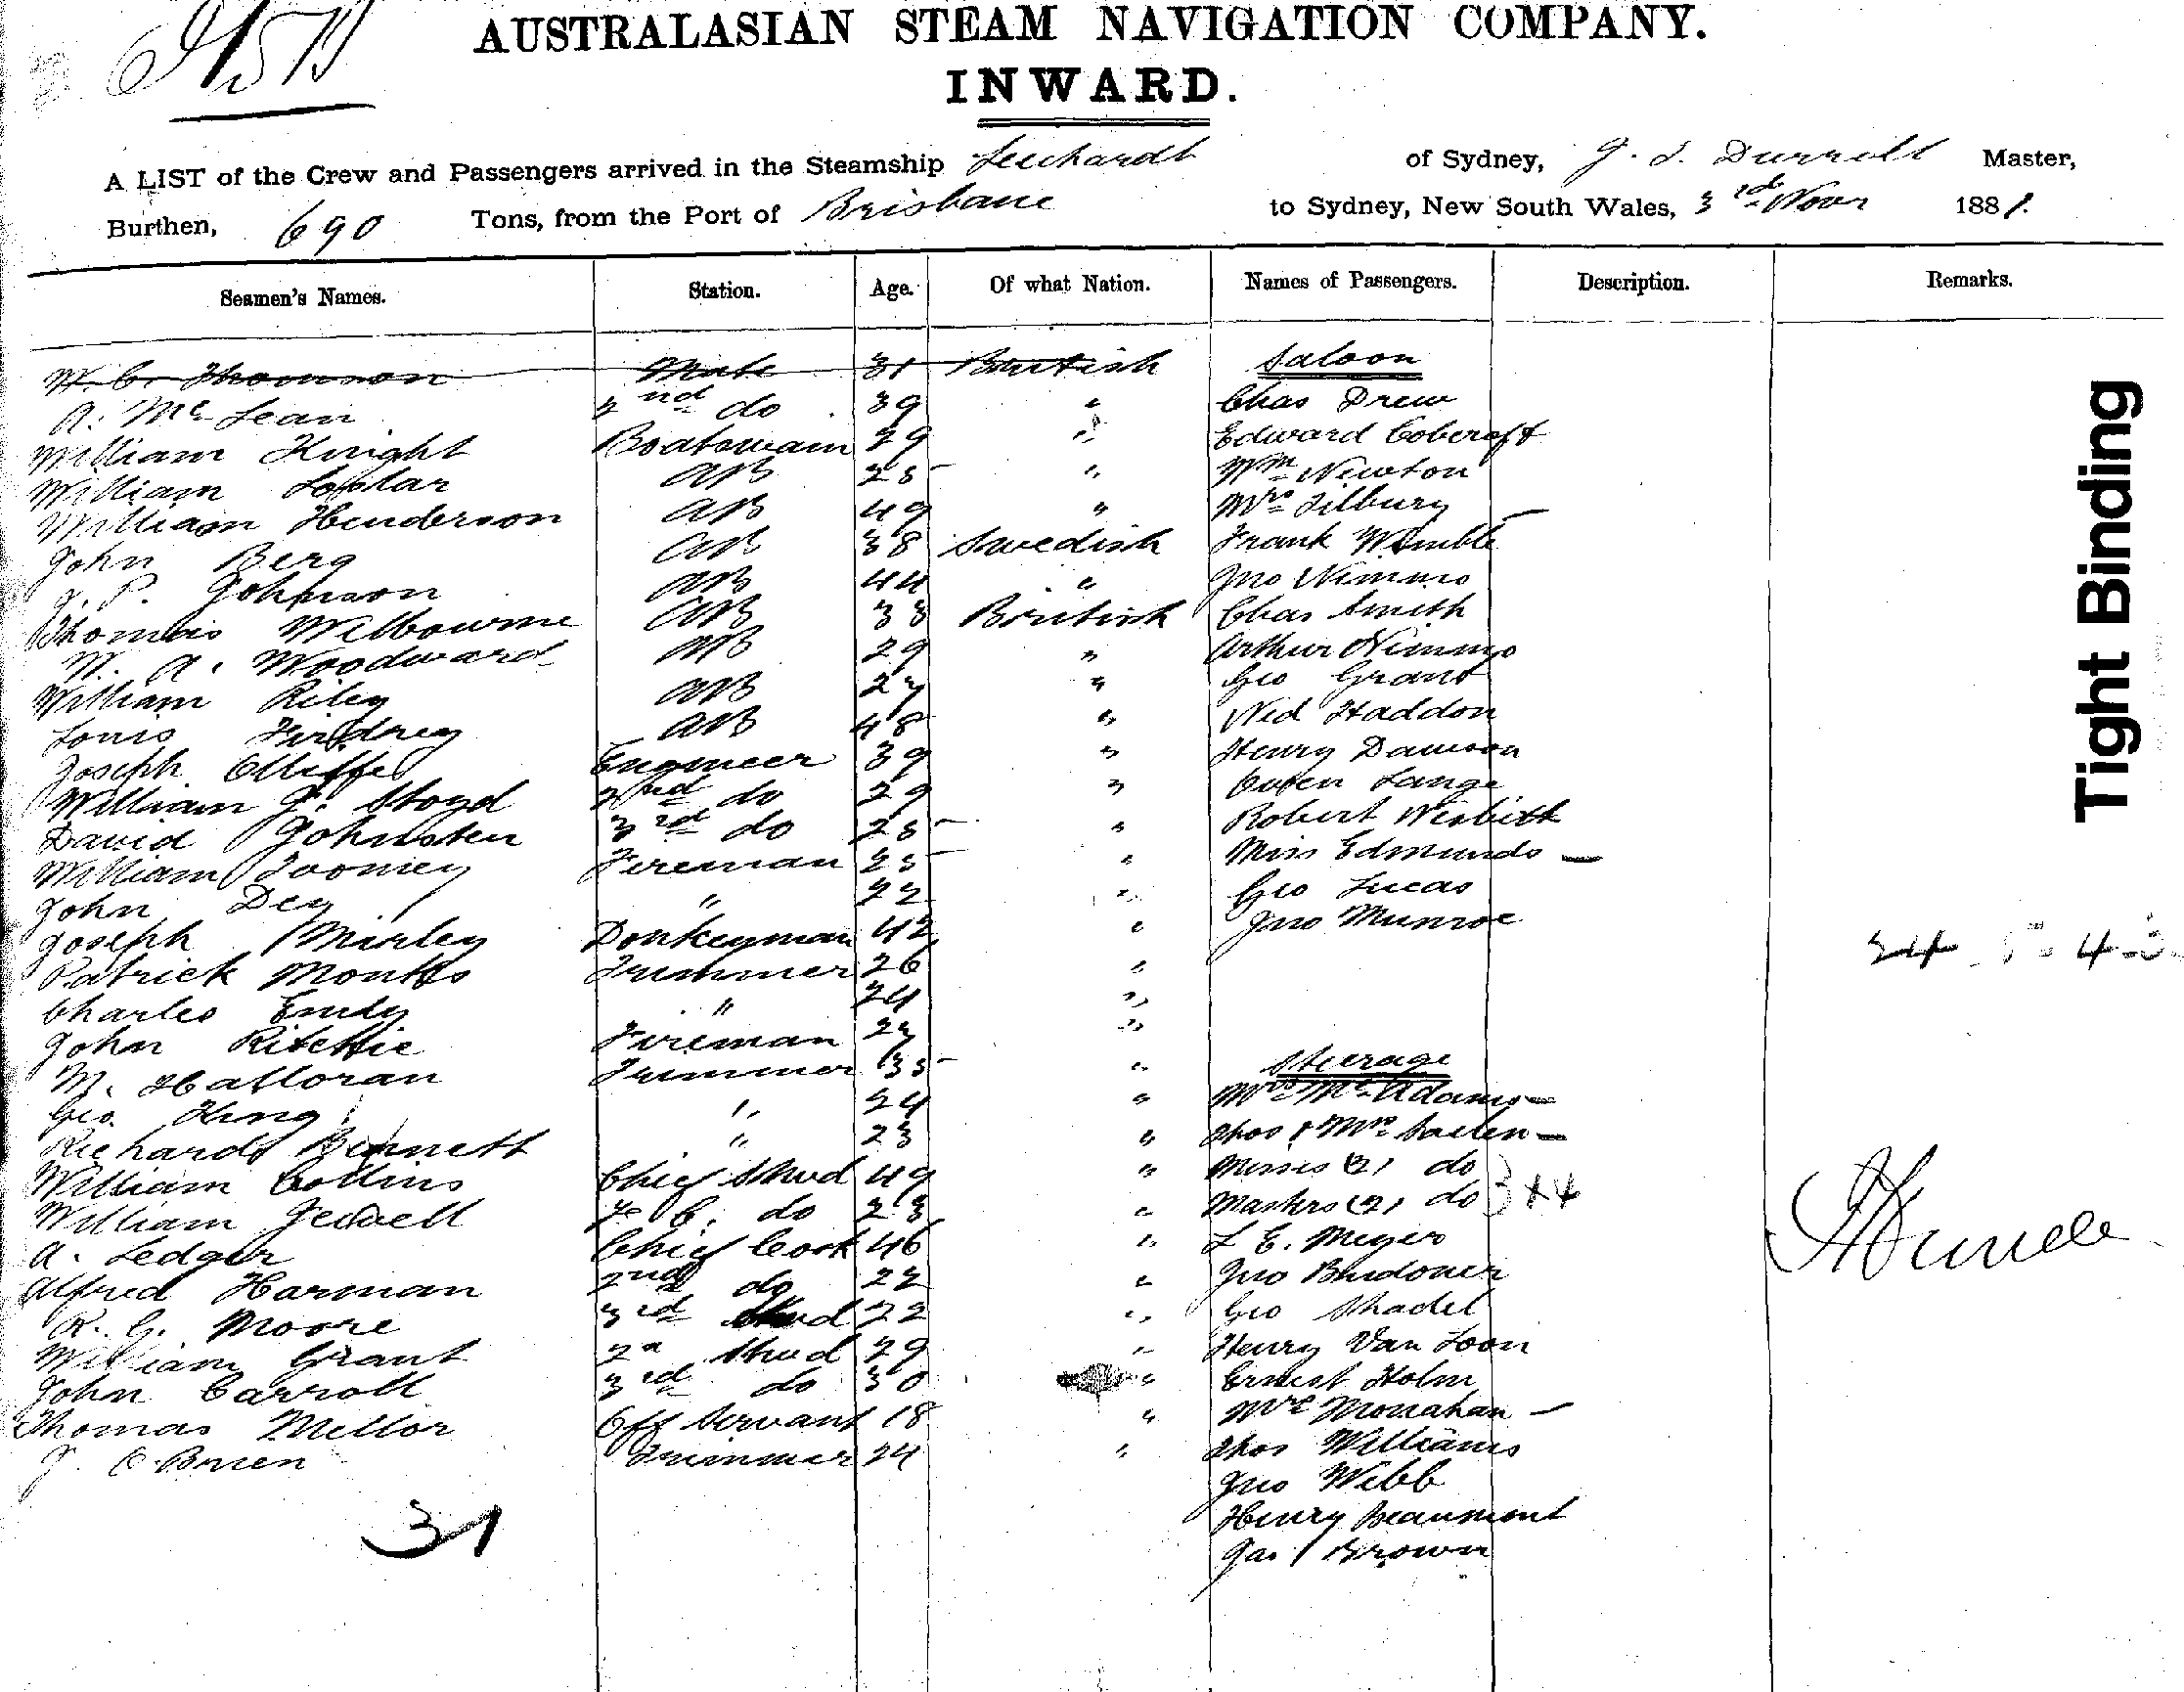 AUSTRALASIAN STEAM NAVIGATION COMPANY.
INWARD.
A LIST of the Crew and Passengers arrived in the Steamship Leichardt of Sydney, J. S. Durrell Master,
Burthen, 690 Tons, from the Port of Brisbane to Sydney, New South Wales, 3rd Novr 1881.
Seamen's Names. Station. Age. Of what Nation. Names of Passengers. Description. Remarks.
W. C. Thomson Mate 31 British Saloon
A. McLean 2nd do 39 " Chas Drew
William Knight Boatswain 29 " Edward Cobcroft
William AB 25 " Wm Newton
William Henderson AB 49 " Mrs Tilbury
John Berg AB 38 Swedish Frank Wimble
J. P. Johnson AB 44 " Jno Nimmo
Thomas Melbourne AB 33 British Chas Smith
W. A. Woodward AB 29 " Arthur Nimmo
William Riley AB 27 " Geo Grant
Louis AB 48 " Ned Haddon
Joseph Olliffe Engineer 39 " Henry Dawson
William J. Stoyd 2nd do 29 " Owen Lange
David Johnston 3rd do 25 " Robert Nesbitt
William Toomey Fireman 25 " Miss Edmunds
John Dey " 22 " Geo Lucas
Joseph Marley Donkeyman 42 " Jno Munroe
Patrick Monks Trimmer 26 "
Charles Emily " 24 "
John Ritchie Fireman 27 "
M. Halloran Trimmer 35 " Steerage
Geo. King " 24 " Mrs McAdams
Richard Bennett " 23 " Thos & Mrs
William Collins Chief Stwd 49 " Misses (2) do
William Jewell F. C. do 23 " Masters (2) do 3 x 4
A. Ledger Chief Cook 46 " L E. Meyer
Alfred Harman 2nd do 22 " Jno
R. G. Moore 3rd Stwd 22 " Geo Shadel
William Grant 2d Stwd 29 " Henry Van Loon
John Carroll 3rd do 30 " Ernest Holm
Thomas Mellor Off Servant 18 " Mrs Monahan
J. O'Brien Trimmer 24 " Thos Williams
Jno Webb
Henry Beaumont
Jas Brown
31
Tight Binding